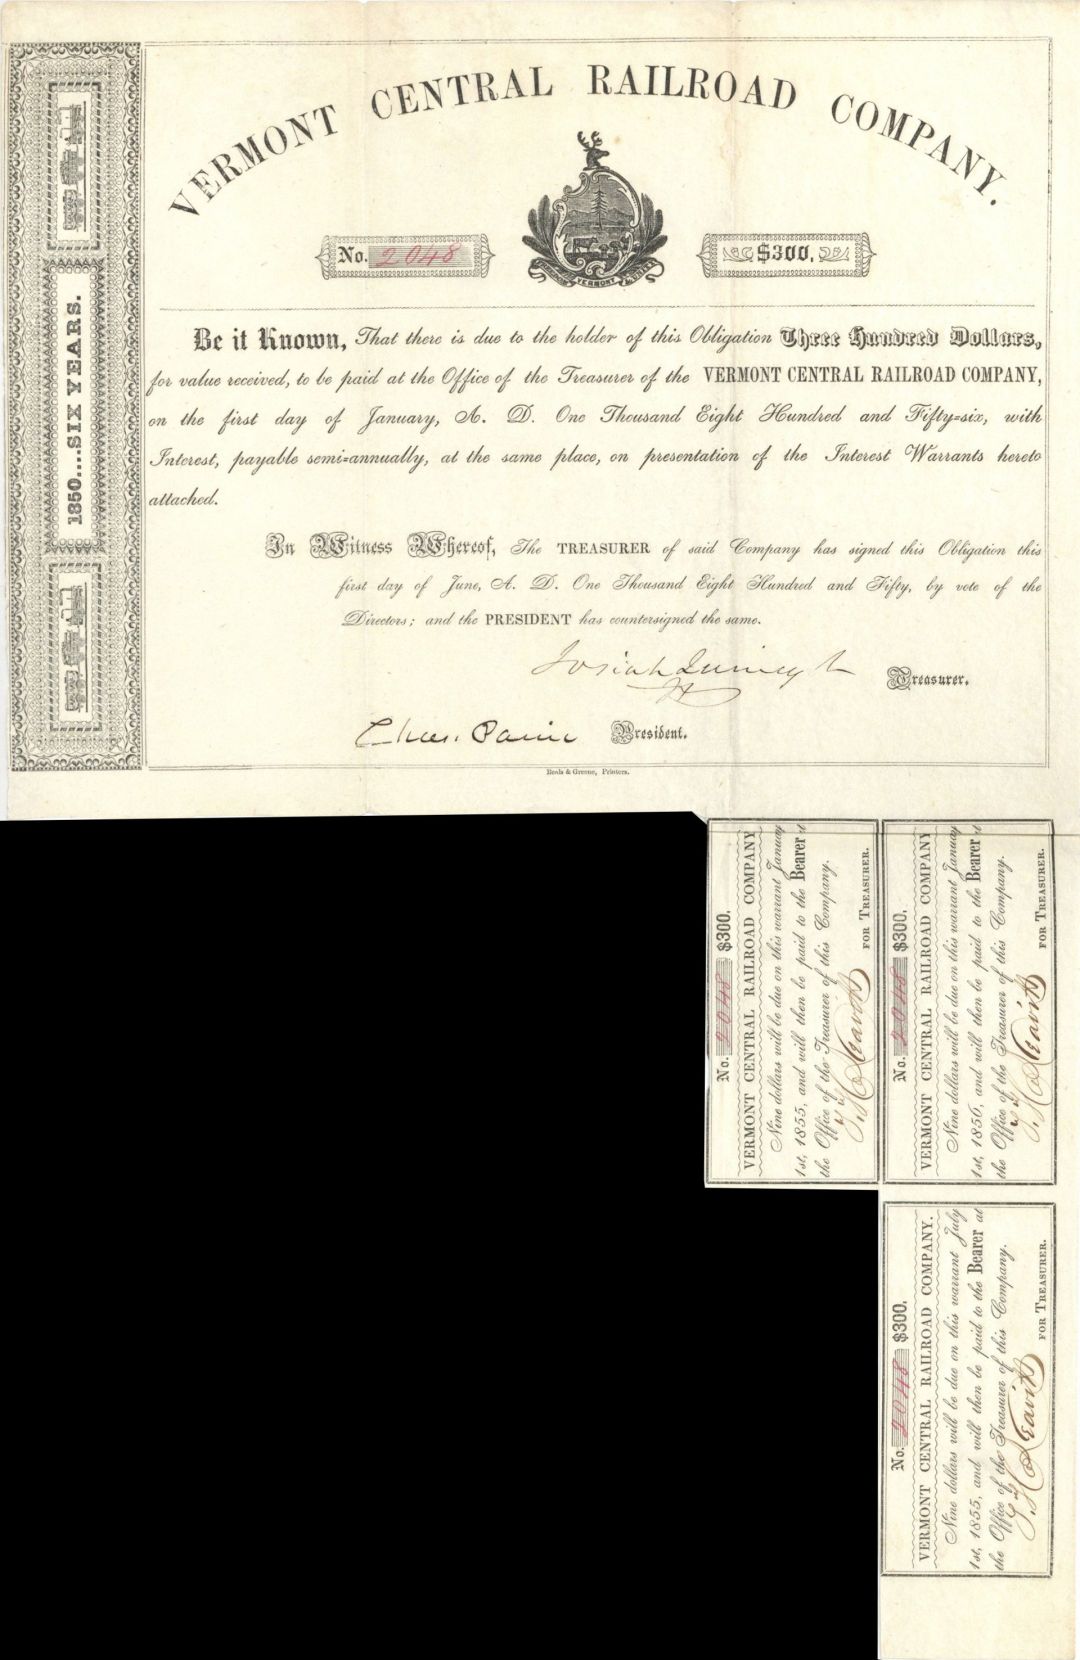 VERMONT CENTRAL RAILROAD COMPANY.
No. 2048
$300.
VERMONT
1850....SIX YEARS.
Be it Known, That there is due to the holder of this Obligation Three Hundred Dollars,
for value received, to be paid at the Office of the Treasurer of the VERMONT CENTRAL RAILROAD COMPANY,
on the first day of January, A. D. One Thousand Eight Hundred and Fifty-six, with
Interest, payable semi-annually, at the same place, on presentation of the Interest Warrants hereto
attached.
In Witness Whereof, The TREASURER of said Company has signed this Obligation this
first day of June, A. D. One Thousand Eight Hundred and Fifty, by vote of the
Directors; and the PRESIDENT has countersigned the same.
Josiah Quincy Jr
Treasurer.
Chas. Paine President.
Beals & Greene, Printers.
No. 2048 $300.
VERMONT CENTRAL RAILROAD COMPANY
Nine dollars will be due on this warrant January
1st, 1855, and will then be paid to the Bearer
the Office of the Treasurer of this Company.
FOR TREASURER.
No. 2048 $300.
VERMONT CENTRAL RAILROAD COMPANY
Nine dollars will be due on this warrant January
1st, 1856, and will then be paid to the Bearer
the Office of the Treasurer of this Company.
FOR TREASURER.
No. 2048 $300.
VERMONT CENTRAL RAILROAD COMPANY.
Nine dollars will be due on this warrant July
1st, 1855, and will then be paid to the Bearer at
the Office of the Treasurer of this Company.
FOR TREASURER.